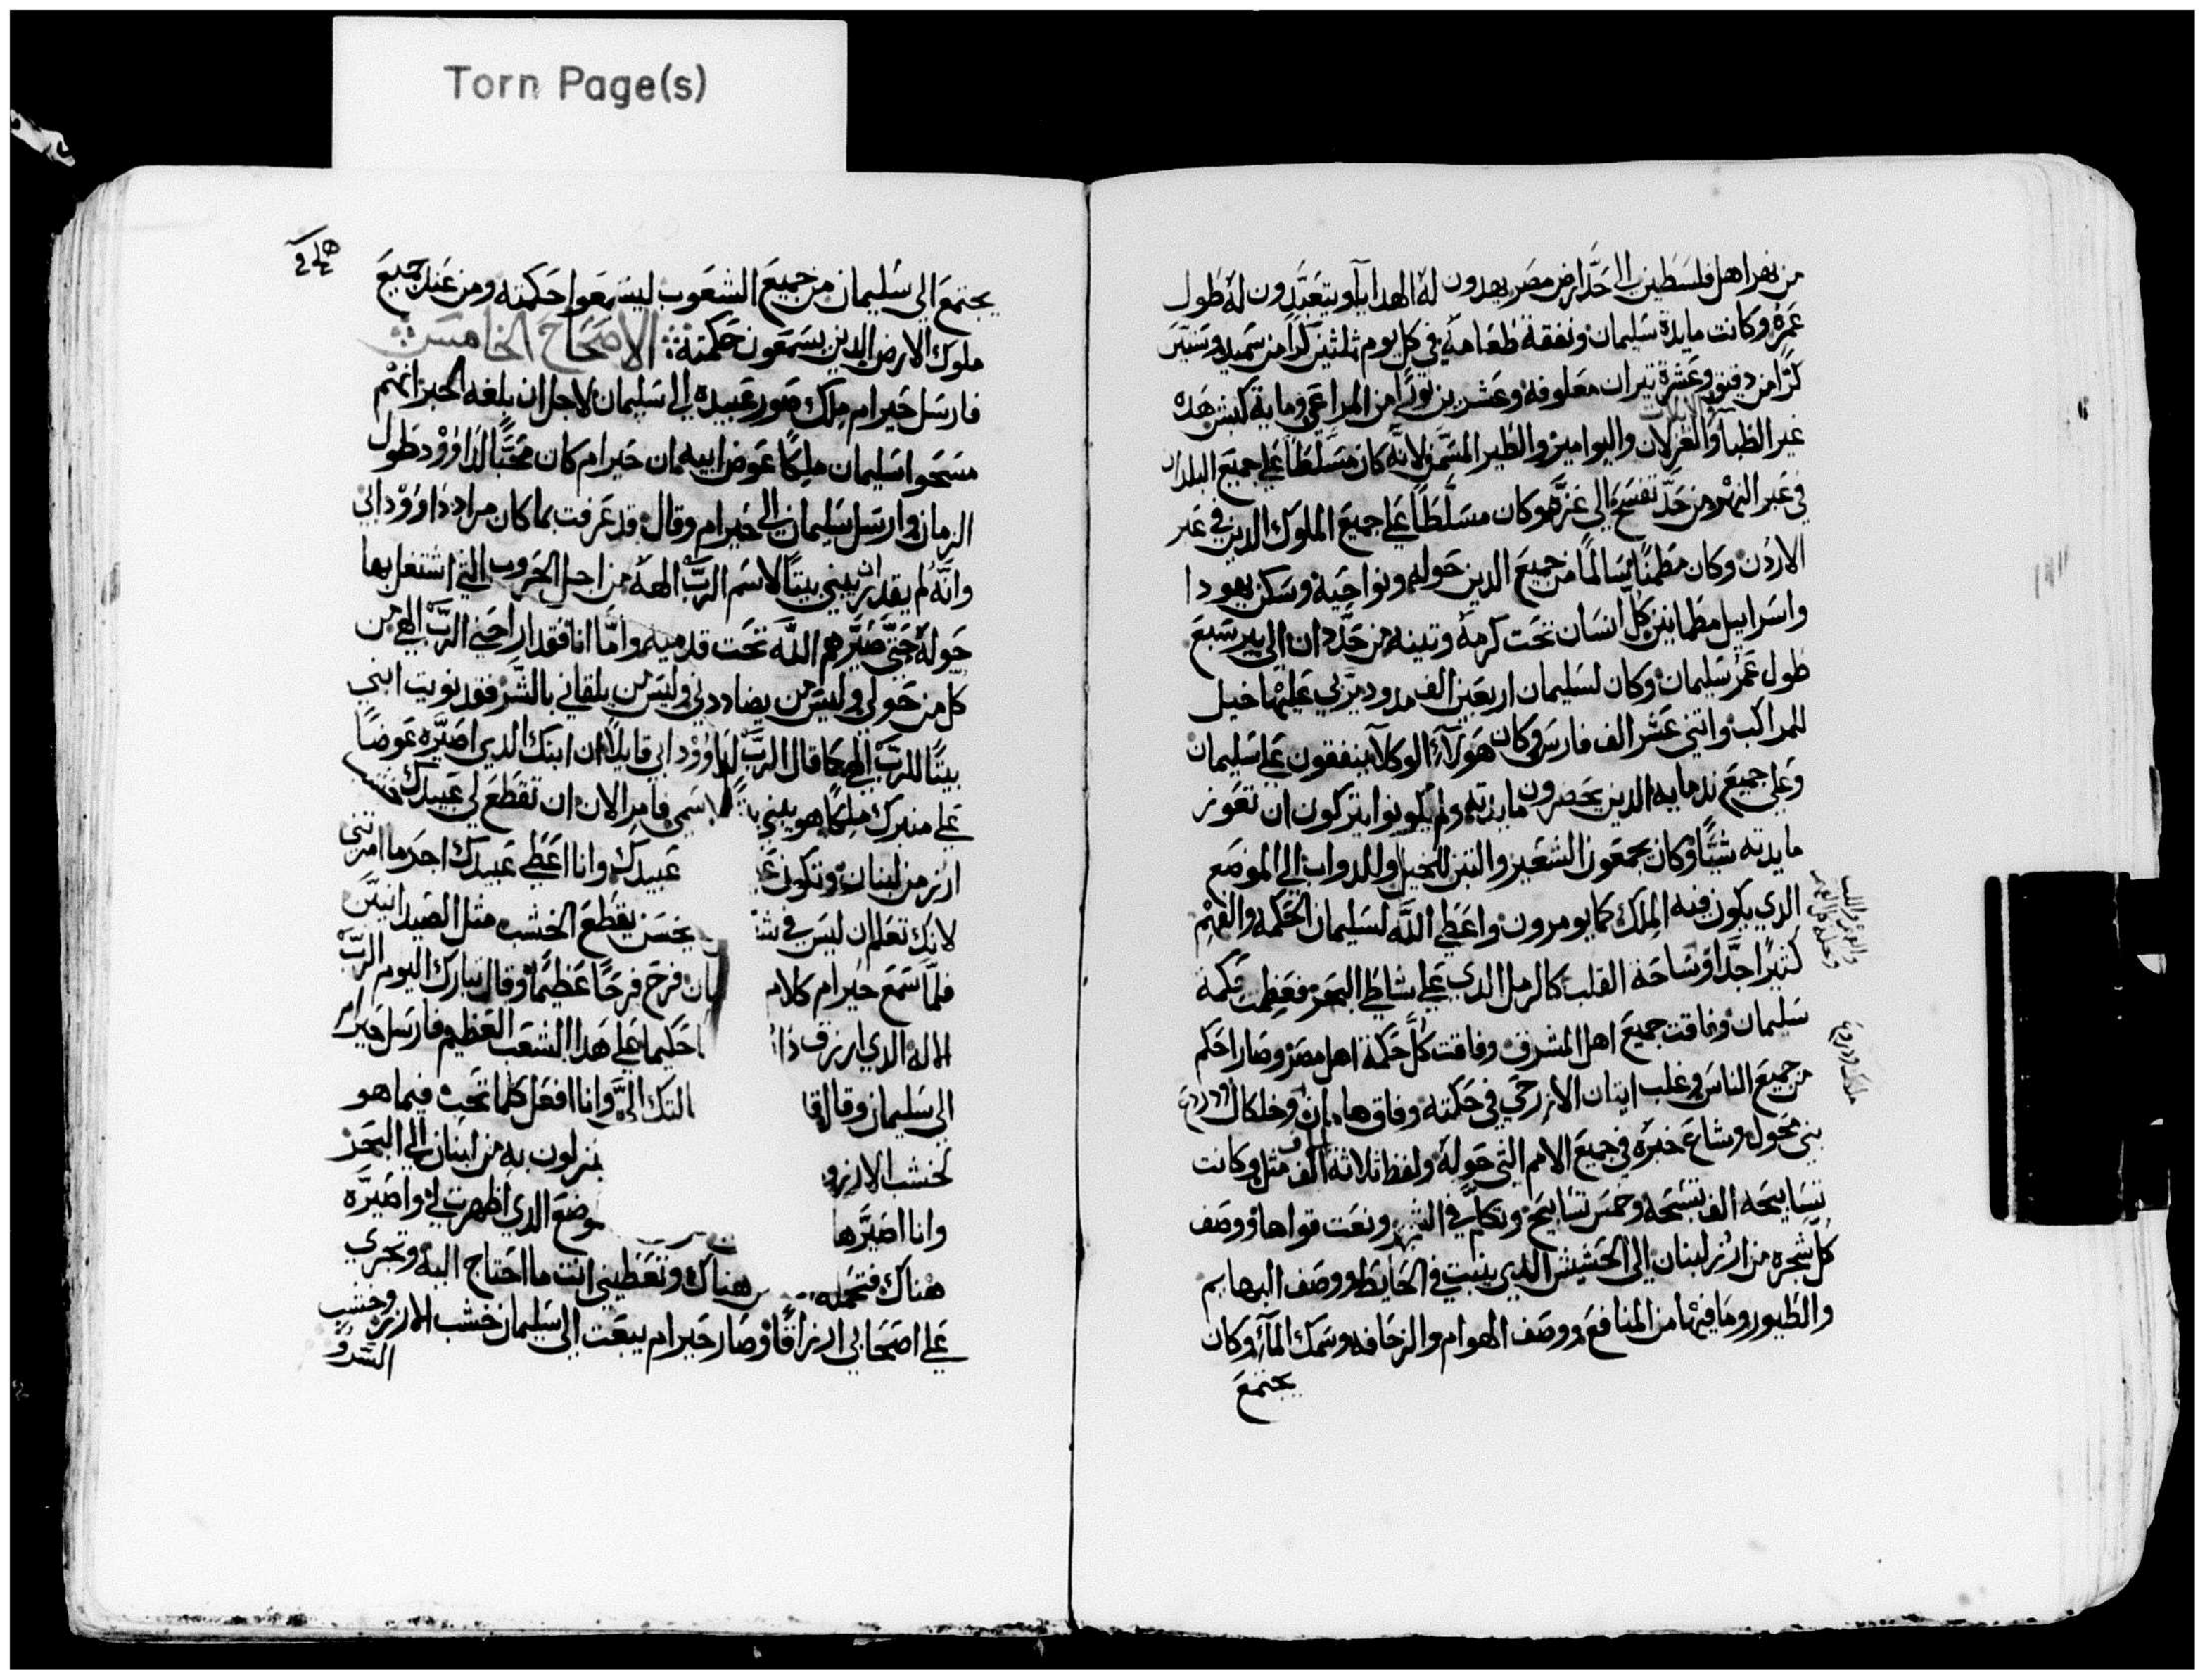 Torn Page(s)
من نهر اهل فلسطين الى حدّ ارض مصر يهدون لهُ الهدايا ويتعبَّدون لهُ طول
عمرهُ وكانت مايدة سليمان ونفقة طعامهُ في كل يوم ثلثين كرًا من سميد وستين
كرًّا من دقيق وعشرة تيران معلوفه وعشرين ثورًا من المراعي وماية كبش هده
غير الظبا والغزلان واليوامير والطير المسَمَّن لانَّه كان مسَلَّطًا على جميع البلدان
في عبر النهر من حدّ تفسح الى غزَّه وكان مسَلَّطًا على جميع الملوك الدين في عبر
الاردن وكان مطمئنًا مسالمًا من جميع الدين حوله ونواحيه وسكن يهودا
واسراييل مطمانين كل انسان تحت كرمهُ وتينه من حدّ دان الى بير سبع
طول عمر سليمان وكان لسليمان اربعين الف مدود يربي عليها خيل
للمراكب واتني عشر الف فارس وكان هولآء الوكلآ ينفقون على سليمان
وعلى جميع ندمايه الدين يحضرون مايدته ولم يكونوا يتركون ان تعوز
مايدته شيًّا وكان يجمعون الشعير والتبن للخيل وللدواب الى الموضع
الدي يكون فيه الملك كما يومرون واعطى اللّه لسليمان الحكمه والفهم
كثيرًا جدًّا وساحة القلب كالرمل الدي على شاطى البحر فعظمت حكمة
سليمان وفاقت جميع اهل المشرق وفاقت كلّ حكمة اهل مصر وصار احكم
من جميع الناس وغلب ايتان الازرحي في حكمته وفاق هامان وخلكال ودردع
بني محول وشاع خبره في جميع الامم التي حولهُ ولفظ ثلاثة الاف مثل وكانت
تسابيحه الف تسبحه وخمس تسابيح وتكلَّم في الشجر ونعت قواها ووصف
كلّ شجره من ارز لبنان الى الحشيش الدي ينبت في الحايط ووصف البهايم
والطيور وما فيها من المنافع ووصف الهوام والزحافه وسمك المآء وكان
يجتمع
يجتمع الى سليمان من جميع الشعوب ليسمعوا حكمته ومن عند جميع
ملوك الارض الدين يسمعون حكمته: الاصحاح الخامس
فارسل حيرام ملك صور عبيده الى سليمان لاجل ان بلغه الخبر انهم
مسحوا سليمان ملكًا عوض ابيه لان حيرام كان محبًّا لداوود طول
الزمان وارسل سليمان الى حيرام وقال قد عرفت بما كان مراد داوود ابي
وانَّه لم يقدر ان يبني بيتًا لاسم الربّ الهه من اجل الحروب التي اشتغل بها
حولهُ حتى صيَّرهم اللّه تحت قدميه وامَّا انا فقد اراحني الربّ الهي من
كل من حولي وليس من يضاددني وليس من يلقاني بالشَّر فقد نويت ابني
بيتًا للربّ الهي كما قال الربّ لداوود ابي قايلًا ان ابنك الدي اصيَّره عوضًا
على منبرك ملكًا هو يبني بيتًا لاسمي فامر الان ان تقطع لي عبيدك خشب
ارز من لبنان وتكون عبيدك وانا اعطي عبيدك اجر ما امرتني
لانك تعلم ان ليس في شعبي يحسن يقطع الخشب مثل الصيدانيّين
فلمَّا سمع حيرام كلام فرح فرحًا عظيمًا وقال تبارك اليوم الربّ
الاله الدي ارزق حكيما على هدا الشعب العظيم فارسل حيرام
الى سليمان وقال اليَّ وانا افعل كلما تحبّ فيما هو
لخشب الارز ينزلون به من لبنان الى البحر
وانا اصيَّرها الدي اظهرت لي واصيَّره
هناك فتحمله هناك وتعطيني انت ما احتاج اليه وتجري
على اصحابي ارزاقًا وصار حيرام يبعت الى سليمان خشب الارز وخشب
السَّرو